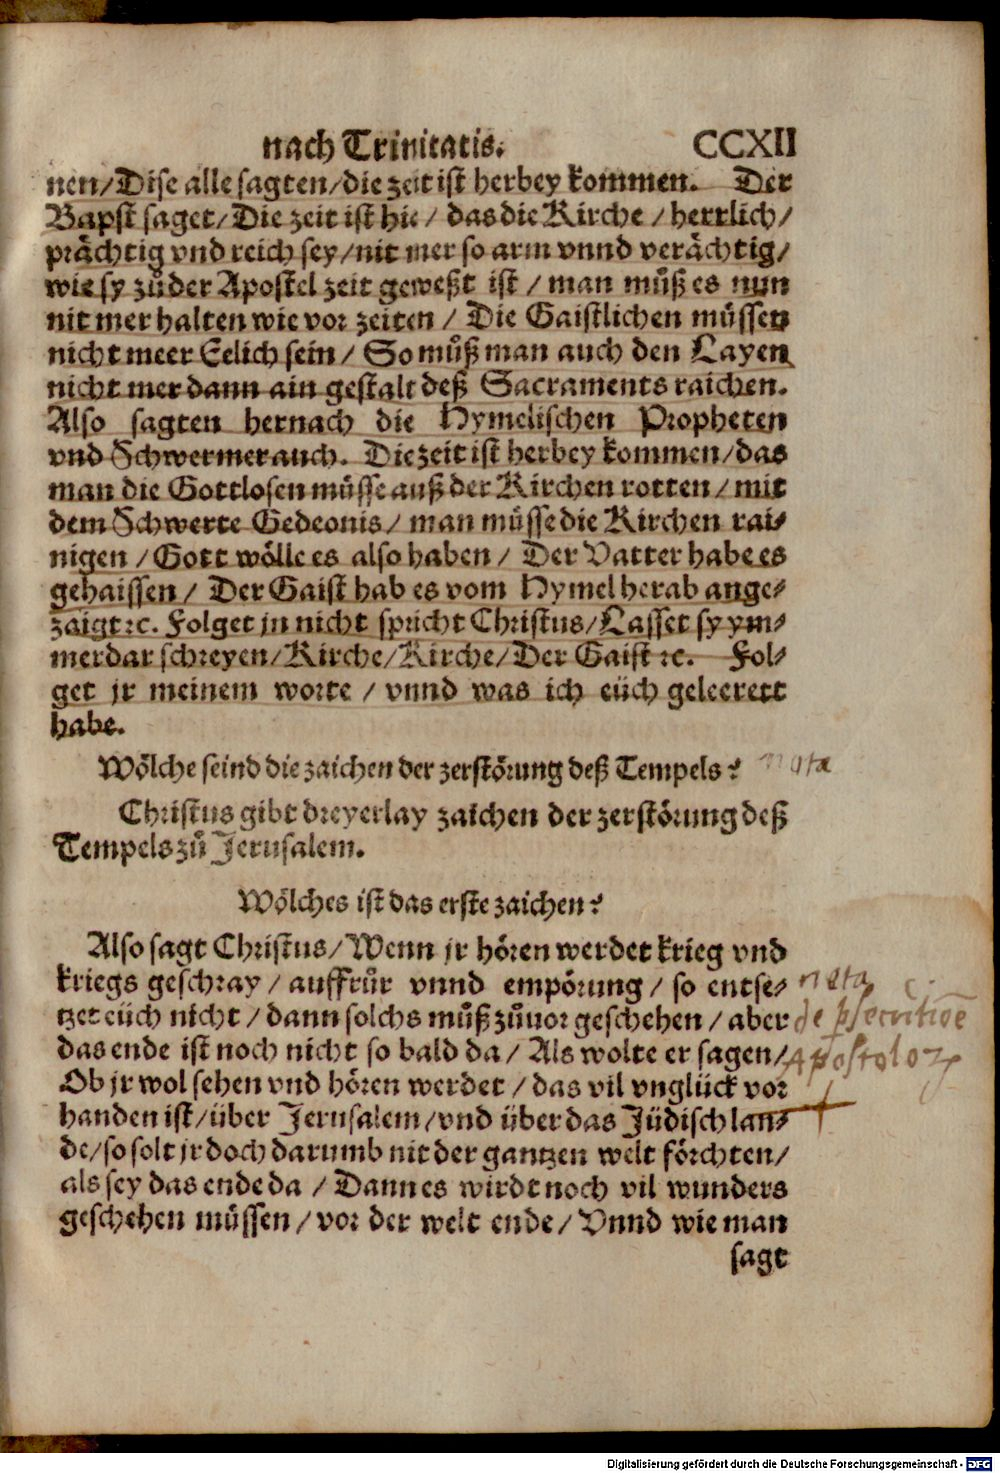 nach Trinitatis. CCXII
nen/Dise alle sagten/die zeit ist herbey kommen. Der
Bapst saget/Die zeit ist hie/ das die Kirche /herrlich/
prächtig vnd reich sey/nit mer so arm vnnd verächtig/
wie sy zů der Apostel zeit geweßt ist / man můß es nun
nit mer halten wie vor zeiten / Die Gaistlichen müssen
nicht meer Eelich sein/ So můß man auch den Layen
nicht mer dann ain gestalt deß Sacraments raichen.
Also sagten hernach die Hymelischen Propheten
vnd Schwermer auch. Die zeit ist herbey kommen/das
man die Gottlosen müsse auß der Kirchen rotten/mit
dem Schwerte Gedeonis/ man müsse die Kirchen rai⸗
nigen /Gott wölle es also haben/ Der Vatter habe es
gehaissen/ Der Gaist hab es vom Hymel herab ange⸗
zaigt ꝛc. Folget jn nicht spricht Christus/Lasset sy ym⸗
merdar schreyen/Kirche/Kirche/Der Gaist ꝛc. Fol⸗
get jr meinem worte / vnnd was ich eüch geleerett
habe.
Wölche seind die zaichen der zerstörung deß Tempels? nota
Christus gibt dreyerlay zaichen der zerstörung deß
Tempels zů Jerusalem.
Wölches ist das erste zaichen?
Also sagt Christus/Wenn jr hören werdet krieg vnd
kriegs geschray / auffrůr vnnd empörung/ so entse⸗ nota
tzet eüch nicht/dann solchs můß zůuor geschehen/aber de psecutiōe
das ende ist noch nicht so bald da/ Als wolte er sagen/ Apostoloꝝ
Ob jr wol sehen vnd hören werdet /das vil vnglück vor
handen ist/über Jerusalem/vnd über das Jüdisch lan⸗
de/so solt jr doch darumb nit der gantzen welt förchten/
als sey das ende da / Dann es wirdt noch vil wunders
geschehen müssen/vor der welt ende/ Vnnd wie man
sagt
Digitalisierung gefördert durch die Deutsche Forschungsgemeinschaft - DFG